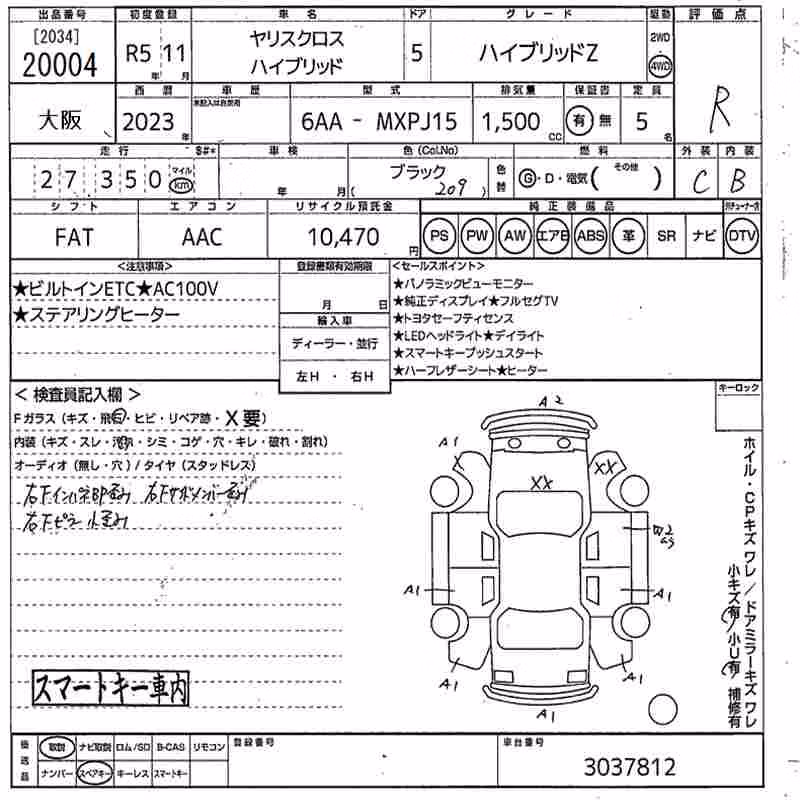 出品番号 初度登録 車名 ドア グレード 駆動 評価点
[2034] 20004 R5 年 11 月 ヤリスクロス ハイブリッド 5 ハイブリッドZ 2WD 4WD R
西暦 車歴 型式 排気量 保証書 定員
大阪 2023 年 未記入は自家用 6AA - MXPJ15 1,500 CC 有 無 5 名
走行 $#* 車検 色 (Cal.No) 燃料 外装 内装
27350 マイル km 年 月 ブラック ( 209 ) 色替 G・D・電気 ( その他 ) C B
シフト エアコン リサイクル預託金 純正装備品
FAT AAC 10,470 円 PS PW AW エアB ABS 革 SR ナビ DTV
<注意事項> 登録書類有効期限 <セールスポイント>
★ビルトインETC★AC100V
★ステアリングヒーター
月 日
輸入車
ディーラー・並行
左H ・ 右H
★パノラミックビューモニター
★純正ディスプレイ★フルセグTV
★トヨタセーフティセンス
★LEDヘッドライト★デイライト
★スマートキープッシュスタート
★ハーフレザーシート★ヒーター
< 検査員記入欄 >
キーロック
Fガラス (キズ・飛石・ヒビ・リペア跡・X要)
内装 (キズ・スレ・汚れ・シミ・コゲ・穴・キレ・破れ・割れ)
オーディオ (無し・穴) / タイヤ (スタッドレス)
A2
A1
XX
XX
A1
A1
A1
A1
A1
ホイル・CPキズ ワレ / ドアミラーキズ ワレ
小キズ有 / 小U有 補修有
スマートキー車内
後送品 取説 ナビ取説 ロム/SD B-CAS リモコン 登録番号 車台番号
ナンバー スペアキー キーレス スマートキー 3037812